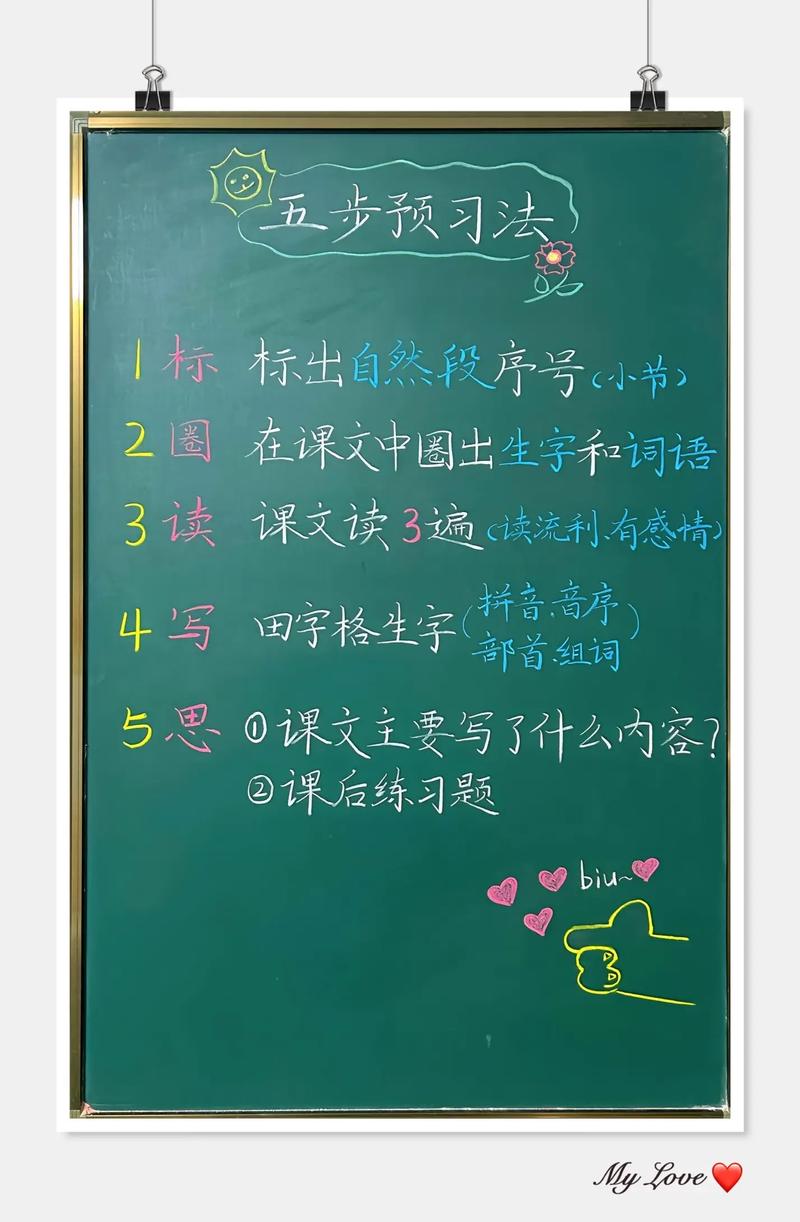 五步预习法
1 标 标出自然段序号(小节)
2 圈 在课文中圈出生字和词语
3 读 课文读3遍(读流利、有感情)
4 写 田字格生字(拼音、音序
部首、组词)
5 思 ①课文主要写了什么内容?
②课后练习题
biu~
My Love❤️